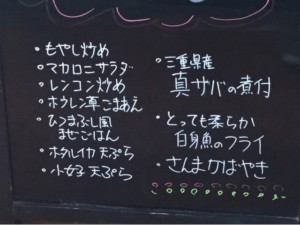 ・もやし炒め
・マカロニサラダ
・レンコン炒め
・ホウレン草ごまあえ
・ひつまぶし風
まぜごはん
・ホタルイカ天ぷら
・小女子天ぷら
・三重県産
真サバの煮付
・とっても柔らか
白身魚のフライ
・さんまかばやき